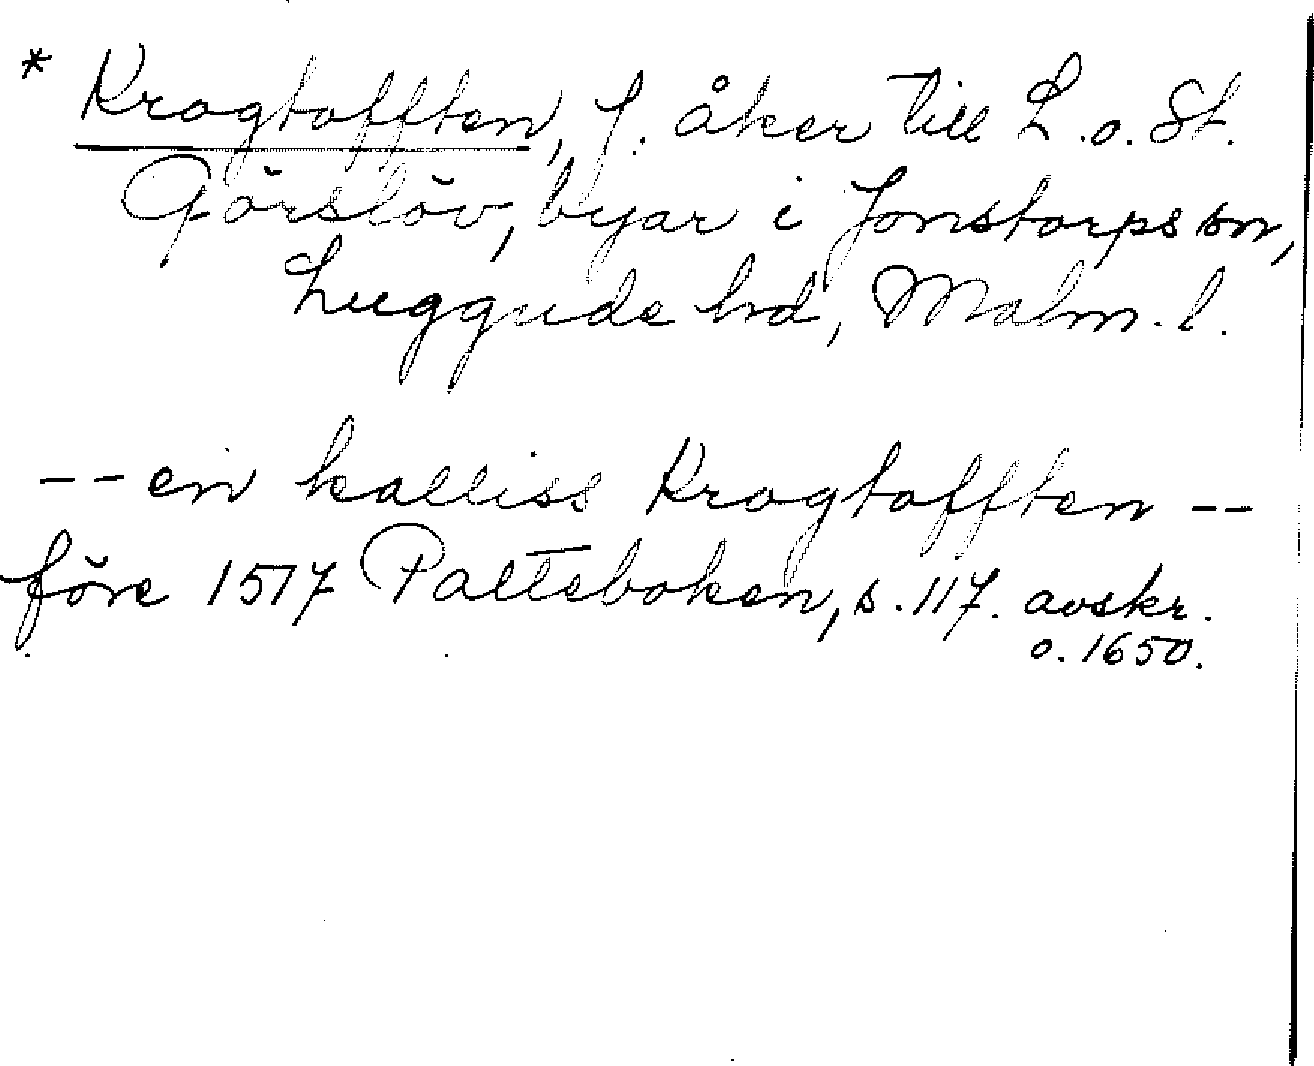 * Krogtofften, f. åker till L. o. St.
Görslöv, byar i Jonstorps sn,
Luggude hd, Malm. l.
-- en kalliss Krogtofften --
före 1517 Palteboken, s. 117. avskr.
o. 1650.